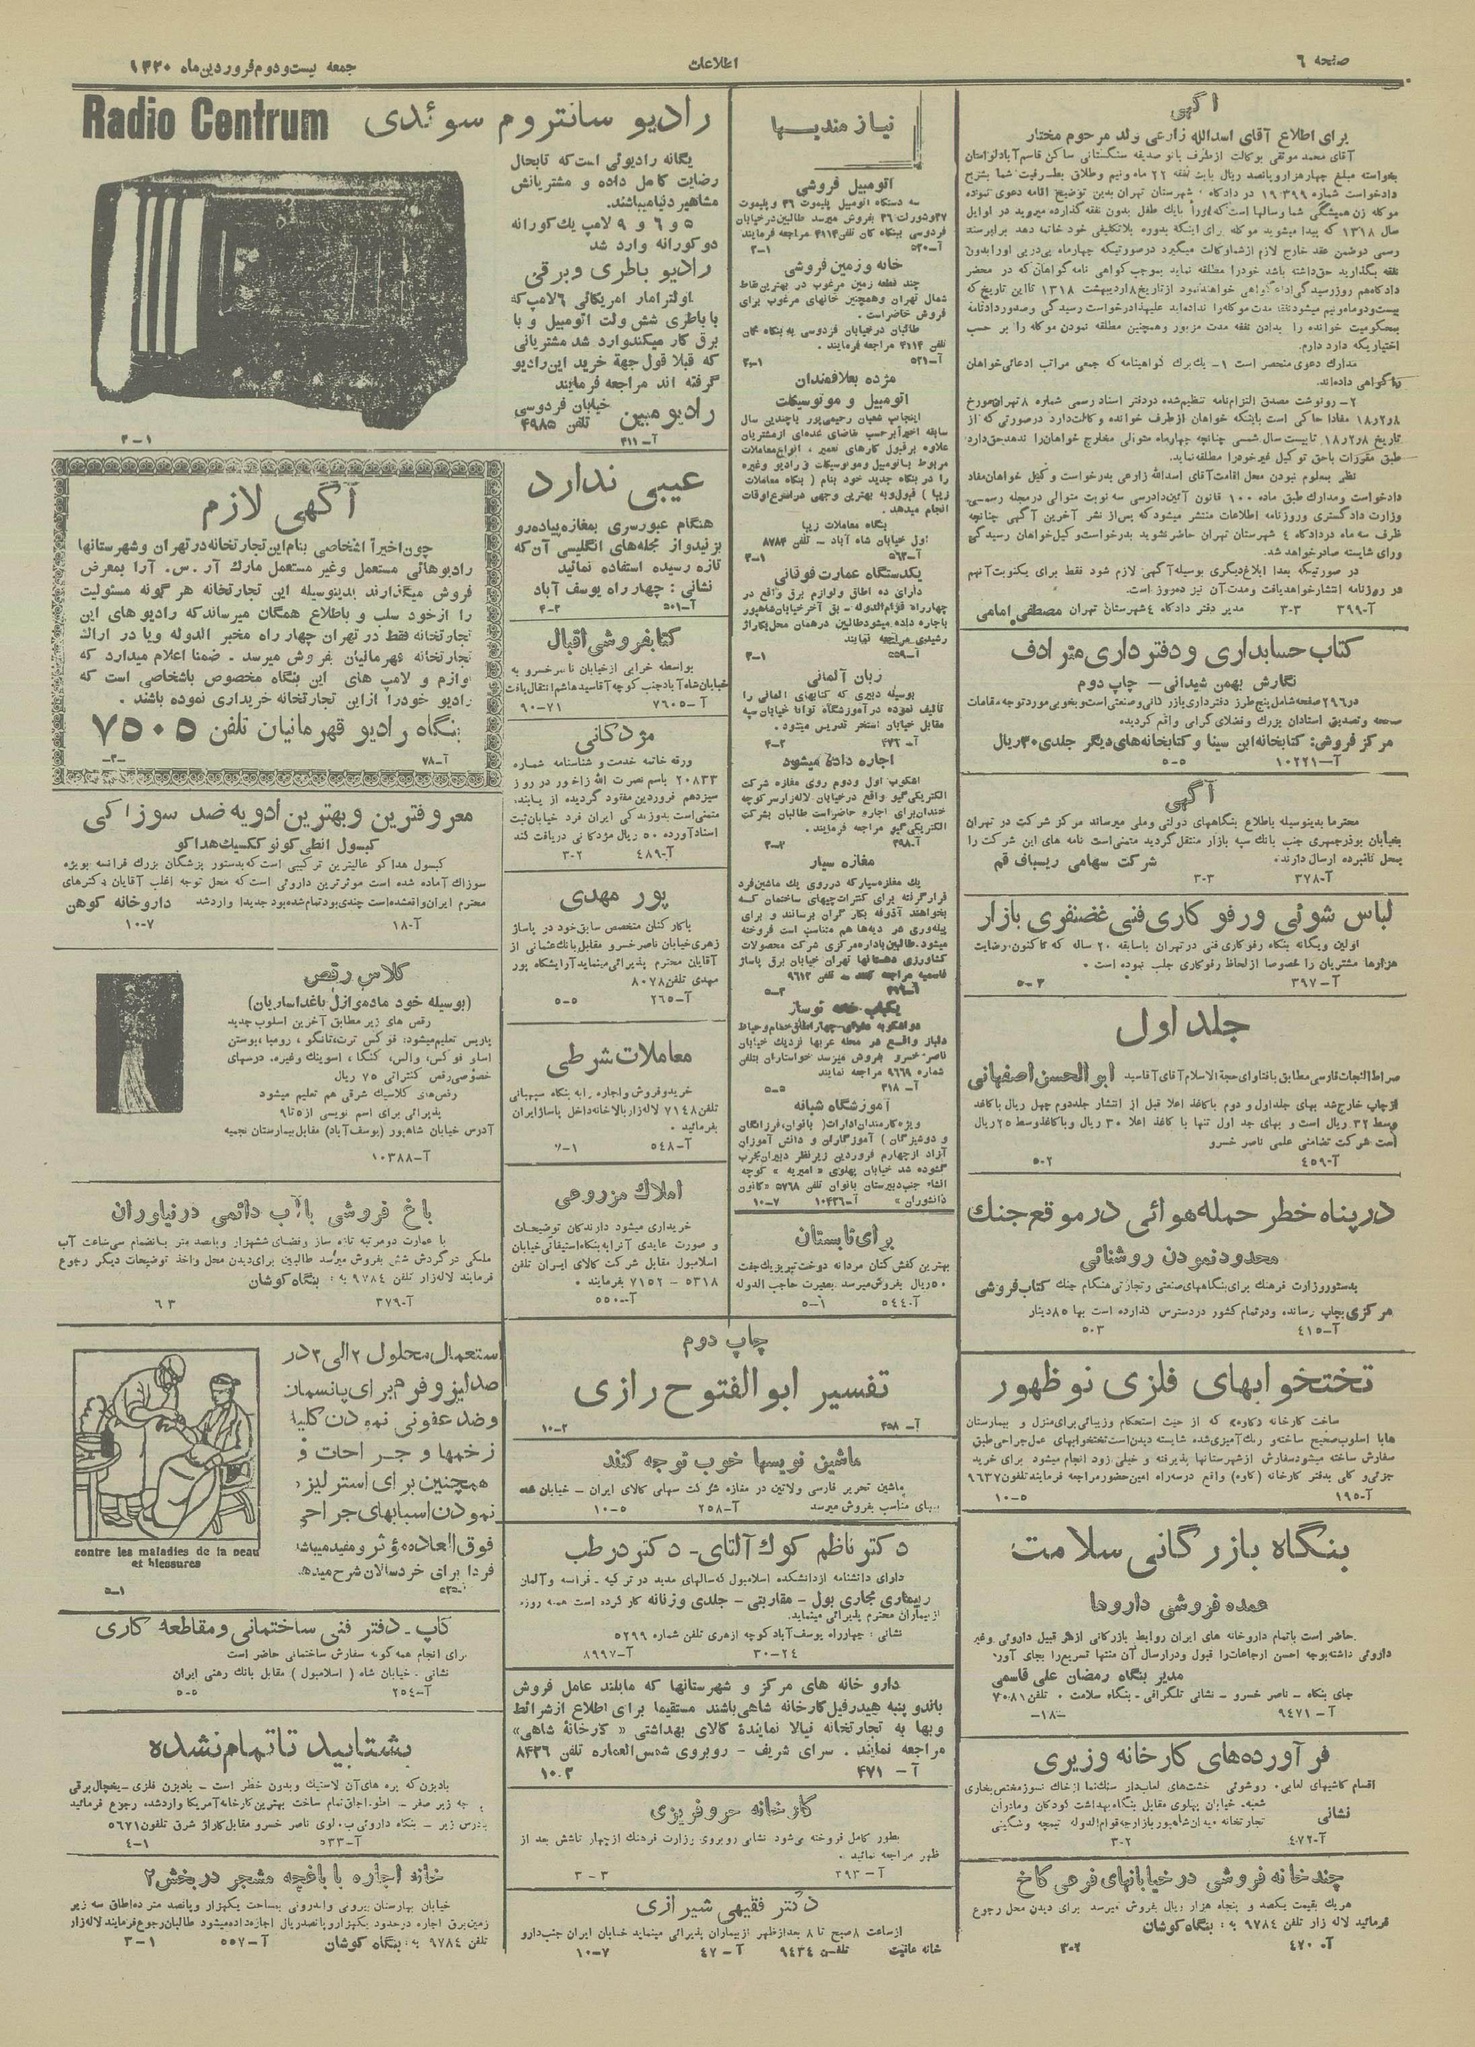 صفحه ٦
اطلاعات
جمعه بیست و دوم فروردین ماه ۱۳۲۰
آگهی
برای اطلاع آقای اسدالله زارعی ولد مرحوم مختار
آقای محمد موثقی بوکالت از طرف بانو صدیقه سنگستانی ساکن قاسم آباد لواسان
بخواسته مبلغ چهار هزار و پانصد ریال بابت نفقه ۲۲ ماه و نیم و طلاق بطرفیت شما بشرح
دادخواست شماره ۱۹۳۹۹ در دادگاه ۴ شهرستان تهران بدین توضیح اقامه دعوی نموده
رسمی دو ضمن عقد خارج لازم از شما وکالت میگیرد در صورتیکه چهار ماه پی در پی او را بدون
نفقه بگذارید حق داشته باشد خود را مطلقه نماید بموجب گواهی نامه گواهان که در محضر
بمحکومیت خوانده را بدادن نفقه مدت مزبور و همچنین مطلقه نمودن موکله را بر حسب
اختیاریکه دارد دارم.
طبق مقررات با حق توکیل غیر خود را مطلقه نماید.
نظر بمعلوم نبودن محل اقامت آقای اسدالله زارعی بدرخواست وکیل خواهان مفاد
دادخواست و مدارک طبق ماده ۱۰۰ قانون آئین دادرسی سه نوبت متوالی در مجله رسمی
وزارت دادگستری و روزنامه اطلاعات منتشر میشود که پس از نشر آخرین آگهی چنانچه
ظرف سه ماه در دادگاه ٤ شهرستان تهران حاضر نشوید بدرخواست وکیل خواهان رسیدگی
و رای شایسته صادر خواهد شد.
در صورتیکه بعدا ابلاغ دیگری بوسیله آگهی لازم شود فقط برای یکنوبت آنهم
در روزنامه انتشار خواهد یافت و مدت آن نیز ده روز است.
آ-۳۹۹ ۳-۳ مدیر دفتر دادگاه ٤ شهرستان تهران مصطفی امامی
کتاب حسابداری و دفترداری مترادف
نگارش بهمن شیدانی - چاپ دوم
در ۲۹٦ صفحه شامل پنج طرز دفترداری بازرگانی و صنعتی است و بخوبی مورد توجه مقامات
صحه و تصدیق استادان بزرگ و فضلای گرامی واقع گردیده
مرکز فروش: کتابخانه ابن سینا و کتابخانه های دیگر جلدی ۳۰ ریال
آ-۱۰۲۲۱ ۵-۵
آگهی
محترما بدینوسیله باطلاع بنگاههای دولتی و ملی میرساند مرکز شرکت در تهران
بخیابان بوذرجمهری جنب بانک سپه بازار منتقل گردید متمنی است نامه های این شرکت را
بمحل نامبرده ارسال دارند. شرکت سهامی ریسباف قم
آ-۳۷۸ ۳-۳
لباس شوئی و رفوکاری فنی غضنفری بازار
اولین و یگانه بنگاه رفوکاری فنی در تهران با سابقه ۲۰ ساله که تاکنون رضایت
هزارها مشتریان را خصوصا از لحاظ رفوکاری جلب نموده است.
آ-۳۹۷ ۳-۵
جلد اول
صراط النجات فارسی مطابق با فتاوای حجة الاسلام آقای آقاسید ابوالحسن اصفهانی
از چاپ خارج شد بهای جلد اول و دوم با کاغذ اعلا قبل از انتشار جلد دوم چهل ریال با کاغذ
وسط ۳۲ ریال است و بهای جلد اول تنها با کاغذ اعلا ۳۰ ریال و با کاغذ وسط ۲۵ ریال
است شرکت تضامنی علمی ناصر خسرو
آ-۴۵۹ ۵-۲
در پناه خطر حمله هوائی در موقع جنگ
محدود نمودن روشنائی
بدستور وزارت فرهنگ برای بنگاههای صنعتی و تجارتی هنگام جنگ کتاب فروشی
مرکزی بچاپ رسانده و در تمام کشور در دسترس گذارده است بها ۸۵ دینار
آ-۴۱۵ ۵-۳
تختخوابهای فلزی نوظهور
ساخت کارخانه «کاوه» که از حیث استحکام و زیبائی برای منزل و بیمارستان
هابا اسلوب صحیح ساخته و رنگ آمیزی شده شایسته دیدن است تختخوابهای عمل جراحی طبق
سفارش ساخته میشود سفارش از شهرستانها پذیرفته و خیلی زود انجام میشود برای خرید
جزئی و کلی بدفتر کارخانه (کاوه) واقع در سه راه امین حضور مراجعه فرمایند تلفون ۹٦۳۷
آ-۱۹۵ ۵-۱۰
بنگاه بازرگانی سلامت
عمده فروشی داروها
حاضر است با تمام داروخانه های ایران روابط بازرگانی از هر قبیل داروئی و غیر
داروئی داشته بوجه احسن ارجاعات را قبول و در ارسال آن منتها تسریع را بجای آورد
مدیر بنگاه رمضان علی قاسمی
جای بنگاه - ناصر خسرو - نشانی تلگرافی - بنگاه سلامت . تلفن ۷۰۸۱
آ-۹٤۷۱ -۱۸-
فرآورده های کارخانه وزیری
اقسام کاشیهای لعابی. روشوئی خشت های لعابدار سنگ نما از خاک نسوز مختص بخاری
نشانی
شعبه. خیابان پهلوی مقابل بنگاه بهداشت کودکان و مادران
آ-٤۷۲ ۳-۲
چند خانه فروشی در خیابانهای فرعی کاخ
هر یک بقیمت یکصد و پنجاه هزار ریال بفروش میرسد برای دیدن محل رجوع
فرمائید لاله زار تلفن ۹۷۸٤ به: بنگاه کوشان
آ-٤۷۰ ۳-۲
نیازمندیها
اتومبیل فروشی
سه دستگاه اتومبیل پلیموت ۳٦ و پلیموت
۳۷ و شورلت ۳٦ بفروش میرسد طالبین در خیابان
فردوسی بنگاه کان تلفن ٤۱۱٤ مراجعه فرمایند
آ-۵۲۰ ۱-۲
خانه و زمین فروشی
چند قطعه زمین مرغوب در بهترین نقاط
شمال تهران و همچنین خانهای مرغوب برای
فروش حاضر است.
طالبان در خیابان فردوسی به بنگاه کان
تلفن ٤۱۱٤ مراجعه فرمایند.
آ-۵۲۱ ۱-۲
مژده بعلاقمندان
اتومبیل و موتوسیکلت
اینجانب شعبان رحیمی پور با چندین سال
سابقه اخیرا بر حسب تقاضای عده ای از مشتریان
علاوه بر قبول کارهای تعمیر، انواع معاملات
مربوط باتومبیل و موتوسیکلت و رادیو و غیره
را در بنگاه جدید خود بنام (بنگاه معاملات
زیبا) قبول و به بهترین وجهی در اسرع اوقات
انجام میدهد.
بنگاه معاملات زیبا
اول خیابان شاه آباد - تلفن ۸۷۸٤
یکدستگاه عمارت فوقانی
دارای ده اطاق و لوازم برق واقع در
باجاره داده میشود طالبین در همان محل بگاراژ
رشیدی مراجعه نمایند
آ-۵۵۹ ۱-۳
زبان آلمانی
بوسیله دبیری که کتابهای آلمانی را
تالیف نموده در آموزشگاه توانا خیابان سپه
مقابل خیابان استخر تدریس میشود.
اجاره داده میشود
اشکوب اول و دوم روی مغازه شرکت
الکتریکی گیو واقع در خیابان لاله زار سر کوچه
خندان برای اجاره حاضر است طالبان بشرکت
الکتریکی گیو مراجعه فرمایند.
مغازه سیار
یک مغازه سیار که در روی یک ماشین فرد
قرار گرفته برای کنتراتچیهای ساختمان که
بخواهند آذوقه بکارگران برسانند و برای
پیله وری در دیه ها هم متناسب است فروخته
میشود. طالبین باداره مرکزی شرکت محصولات
کشاورزی دهستانها تهران خیابان برق پاساژ
یکباب خانه نوساز
دلباز واقع در محله عربها نزدیک خیابان
ناصر خسرو بفروش میرسد خواستاران بتلفن
شماره ۹٦٦۹ مراجعه نمایند
آ-۳۱۸ ۵-۵
آموزشگاه شبانه
ویژه کارمندان ادارات (بانوان، فرزانگان
و دوشیزگان) آموزگاران و دانش آموزان
آزاد از چهارم فروردین زیر نظر دبیران مجرب
گشوده شد خیابان پهلوی «امیریه» کوچه
انشاء جنب دبیرستان بانوان تلفن ۵۷٦۸ «کانون
دانشوران» آ-۱۰٤۳٦ ۷-۱۰
برای تابستان
بهترین کفش کتان مردانه دوخت تبریز یک جفت
۵۰ ریال بفروش میرسد بصیرت حاجب الدوله
آ-۵٤٤ ۱-۵
رادیو سانتروم سوئدی Radio Centrum
یگانه رادیوئی است که تابحال
رضایت کامل داده و مشتریانش
مشاهیر دنیا میباشند.
۵ و ٦ و ۹ لامپ یک کورانه
دو کورانه وارد شد
رادیو باطری و برقی
اولترامار امریکائی ٦ لامپ که
با باطری شش ولت اتومبیل و با
برق کار میکند وارد شد مشتریانی
که قبلا قول جهة خرید این رادیو
گرفته اند مراجعه فرمایند
رادیو مبین
خیابان فردوسی
تلفن ٤۹۸۵
آ-٤۱۱ ۱-۴
عیبی ندارد
هنگام عبور سری بمغازه پیاده رو
بزنید و از مجله های انگلیسی آن که
تازه رسیده استفاده نمائید
نشانی: چهار راه یوسف آباد
آ-۵۰۱ ۲-۴
کتابفروشی اقبال
بواسطه خرابی از خیابان ناصر خسرو به
خیابان شاه آباد جنب کوچه آقاسید هاشم انتقال یافت
آ-۷٦۰۵ ۷۱-۹۰
مژدگانی
ورقه خاتمه خدمت و شناسنامه شماره
۲۰۸۳۳ باسم نصرت الله زاخور در روز
سیزدهم فروردین مفقود گردیده از یابنده
متمنی است بدوزندگی ایران فرد خیابان ثبت
اسناد آورده ۵۰ ریال مژدگانی دریافت کند
آ-٤۸۹ ۳-۲
پور مهدی
با کارکنان متخصص سابق خود در پاساژ
زهری خیابان ناصر خسرو مقابل بانک عثمانی از
آقایان محترم پذیرائی مینماید آرایشگاه پور
مهدی تلفن ۸۰۷۸
آ-۲٦۵ ۵-۵
معاملات شرطی
خرید و فروش و اجاره را به بنگاه سیبیانی
تلفن ۷۱٤۸ لاله زار بالاخانه داخل پاساژ ایران
بفرمائید.
آ-۵٤۸
املاک مزروعی
خریداری میشود دارندگان توضیحات
و صورت عایدی آنرا به بنگاه استیفائی خیابان
اسلامبول مقابل شرکت کالای ایران تلفن
۵۳۱۸ - ۷۱۵۲ بفرمایند.
آ-۵۵۰
چاپ دوم
تفسیر ابوالفتوح رازی
آ-٤۵۸ ۲-۱۰
ماشین نویسها خوب توجه کنند
ماشین تحریر فارسی و لاتین در مغازه شرکت سهامی کالای ایران - خیابان شاه
ببهای مناسب بفروش میرسد آ-۲۵۸ ۵-۱۰
دکتر ناظم کوک آلتای - دکتر در طب
دارای دانشنامه از دانشکده اسلامبول که سالهای مدید در ترکیه - فرانسه و آلمان
بیماری مجاری بول - مقاربتی - جلدی و زنانه کار کرده است همه روزه
از بیماران محترم پذیرائی مینماید.
نشانی: چهارراه یوسف آباد کوچه ازهری تلفن شماره ۵۲۹۹
آ-۸۹۹۷ ۲٤-۳۰
دارو خانه های مرکز و شهرستانها که مایلند عامل فروش
باند و پنبه هیدروفیل کارخانه شاهی باشند مستقیما برای اطلاع از شرائط
و بها به تجارتخانه فیالا نمایندۀ کالای بهداشتی «کارخانۀ شاهی»
مراجعه نمایند. سرای شریف - روبروی شمس العماره تلفن ۸٤۳٦
آ-٤۷۱ ۳-۱۰
کارخانه حروفریزی
بطور کامل فروخته می شود نشانی روبروی وزارت فرهنگ از چهار تا شش بعد از
ظهر مراجعه نمائید.
آ-۳۹۳ ۳-۳
دکتر فقیهی شیرازی
از ساعت ۸ صبح تا ۸ بعد از ظهر از بیماران پذیرائی مینماید خیابان ایران جنب دارو
خانه عاقبت تلفن ۹٤۳٤ آ-٤۷ ۷-۱۰
آگهی لازم
چون اخیراً اشخاصی بنام این تجارتخانه در تهران و شهرستانها
رادیوهائی مستعمل و غیر مستعمل مارک آر. س. آ را بمعرض
فروش میگذارند بدینوسیله این تجارتخانه هر گونه مسئولیت
را از خود سلب و باطلاع همگان میرساند که رادیو های این
تجارتخانه فقط در تهران چهار راه مخبر الدوله و یا در اراک
تجارتخانه قهرمانیان بفروش میرسد. ضمنا اعلام میدارد که
لوازم و لامپ های این بنگاه مخصوص باشخاصی است که
رادیو خود را از این تجارتخانه خریداری نموده باشند.
بنگاه رادیو قهرمانیان تلفن ۷۵۰۵
آ-۷۸ -۳-
معروفترین و بهترین ادویه ضد سوزاکی
کپسول انطی گونو ککسیک هداکو
کپسول هداکو عالیترین ترکیبی است که بدستور پزشکان بزرک فرانسه بویژه
سوزاک آماده شده است موثرترین داروئی است که محل توجه اغلب آقایان دکترهای
محترم ایران واقع شده است چندی بود تمام شده بود جدیدا وارد شد داروخانه کوهن
آ-۱۸ ۷-۱۰
کلاس رقص
(بوسیله خود مادموازل باغداساریان)
رقص های زیر مطابق آخرین اسلوب جدید
پاریس تعلیم میشود: فوکس ترت، تانگو، رومبا، بوستن
اسلو فوکس، والس، کنگا، اسوینک وغیره. درسهای
خصوصی رقص کنتراتی ۷۵ ریال
رقص های کلاسیک شرقی هم تعلیم میشود
پذیرائی برای اسم نویسی از ۵ تا ۹
آدرس خیابان شاهپور (یوسف آباد) مقابل بیمارستان نجمیه
آ-۱۰۳۸۸
باغ فروشی با آب دائمی در نیاوران
با عمارت دو مرتبه تازه ساز و فضای ششهزار و پانصد متر بانضمام سی ساعت آب
ملکی در گردش شش بفروش میرسد طالبین برای دیدن محل و اخذ توضیحات دیگر رجوع
فرمایند لاله زار تلفن ۹۷۸٤ به: بنگاه کوشان
آ-۳۷۹ ٦-۳
استعمال محلول ۲ الی ۳ در
صد لیزوفرم برای پانسمان
و ضد عفونی نمودن کلیه
زخمها و جراحات و
همچنین برای استرلیزه
نمودن اسبابهای جراحی
فوق العاده مؤثر و مفید میباشد
فردا برای خردسالان شرح میدهد
contre les maladies de la peau
et blessures
۱-۵
کاپ - دفتر فنی ساختمانی و مقاطعه کاری
برای انجام همه گونه سفارش ساختمانی حاضر است
نشانی. خیابان شاه (اسلامبول) مقابل بانک رهنی ایران
آ-۲۵٤ ۵-۵
بشتابید تا تمام نشده
بادبزن که پره های آن لاستیک و بدون خطر است - بادبزن فلزی - یخچال برقی
آ-۵۳۳ ۱-٤
خانه اجاره با باغچه مشجر در بخش ۲
خیابان بهارستان بیرونی و اندرونی بمساحت یکهزار و پانصد متر ده اطاق سه زیر
زمین برق اجاره در حدود یکهزار و پانصد ریال اجازه داده میشود طالبان رجوع فرمایند لاله زار
تلفن ۹۷۸٤ به: بنگاه کوشان آ-۵۵۷ ۱-۳